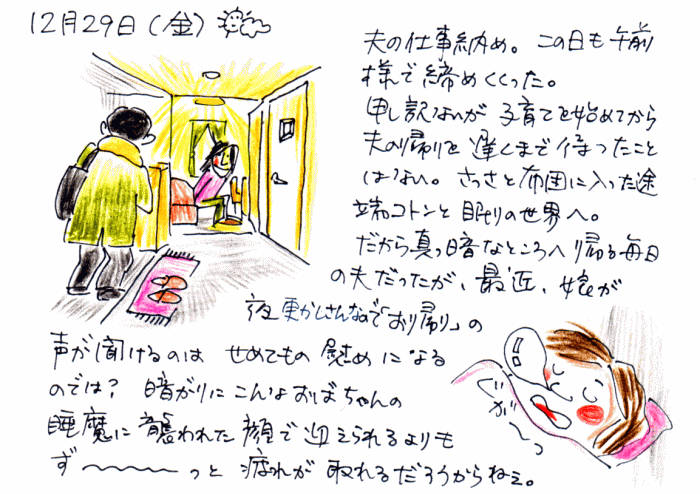 12月29日(金)
夫の仕事納め。この日も午前
様で締めくくった。
申し訳ないが子育てを始めてから
夫の帰りを遅くまで待ったこと
はない。さっさと布団に入った途
端コトンと眠りの世界へ。
だから真っ暗なところへ帰る毎日
の夫だったが、最近、娘が
夜更かしさんなので「おり帰り」の
声が聞けるのは せめてもの慰めになる
のでは? 暗がりにこんなおばちゃんの
睡魔に襲われた顔で迎えられるよりも
ず〜〜〜っと疲れが取れるだろうからねぇ。
ぐがーっ